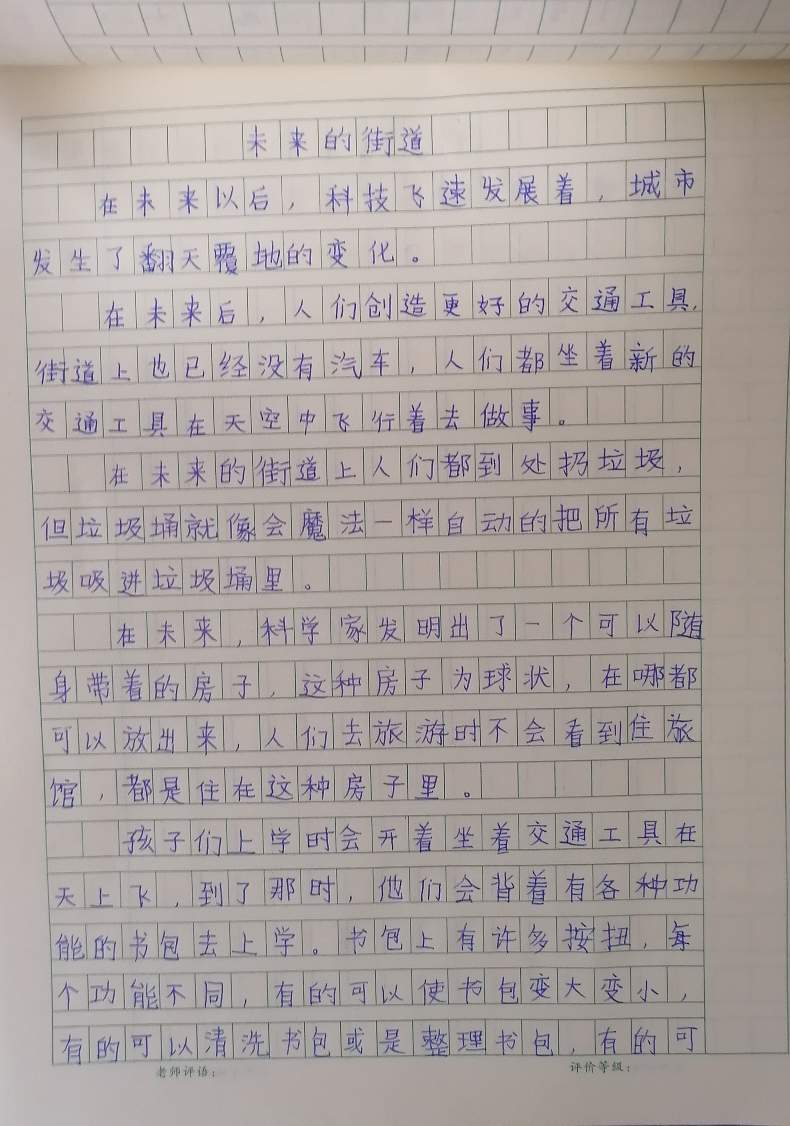 未来的街道
在未来以后，科技飞速发展着，城市
发生了翻天覆地的变化。
在未来后，人们创造更好的交通工具，
街道上也已经没有汽车，人们都坐着新的
交通工具在天空中飞行着去做事。
在未来的街道上人们都到处扔垃圾，
但垃圾埇就像会魔法一样自动的把所有垃
圾吸进垃圾埇里。
在未来，科学家发明出了一个可以随
身带着的房子，这种房子为球状，在哪都
可以放出来，人们去旅游时不会看到住旅
馆，都是住在这种房子里。
孩子们上学时会开着坐着交通工具在
天上飞，到了那时，他们会背着有各种功
能的书包去上学。书包上有许多按扭，每
个功能不同，有的可以使书包变大变小，
有的可以清洗书包或是整理书包，有的可
老师评语：
评价等级：